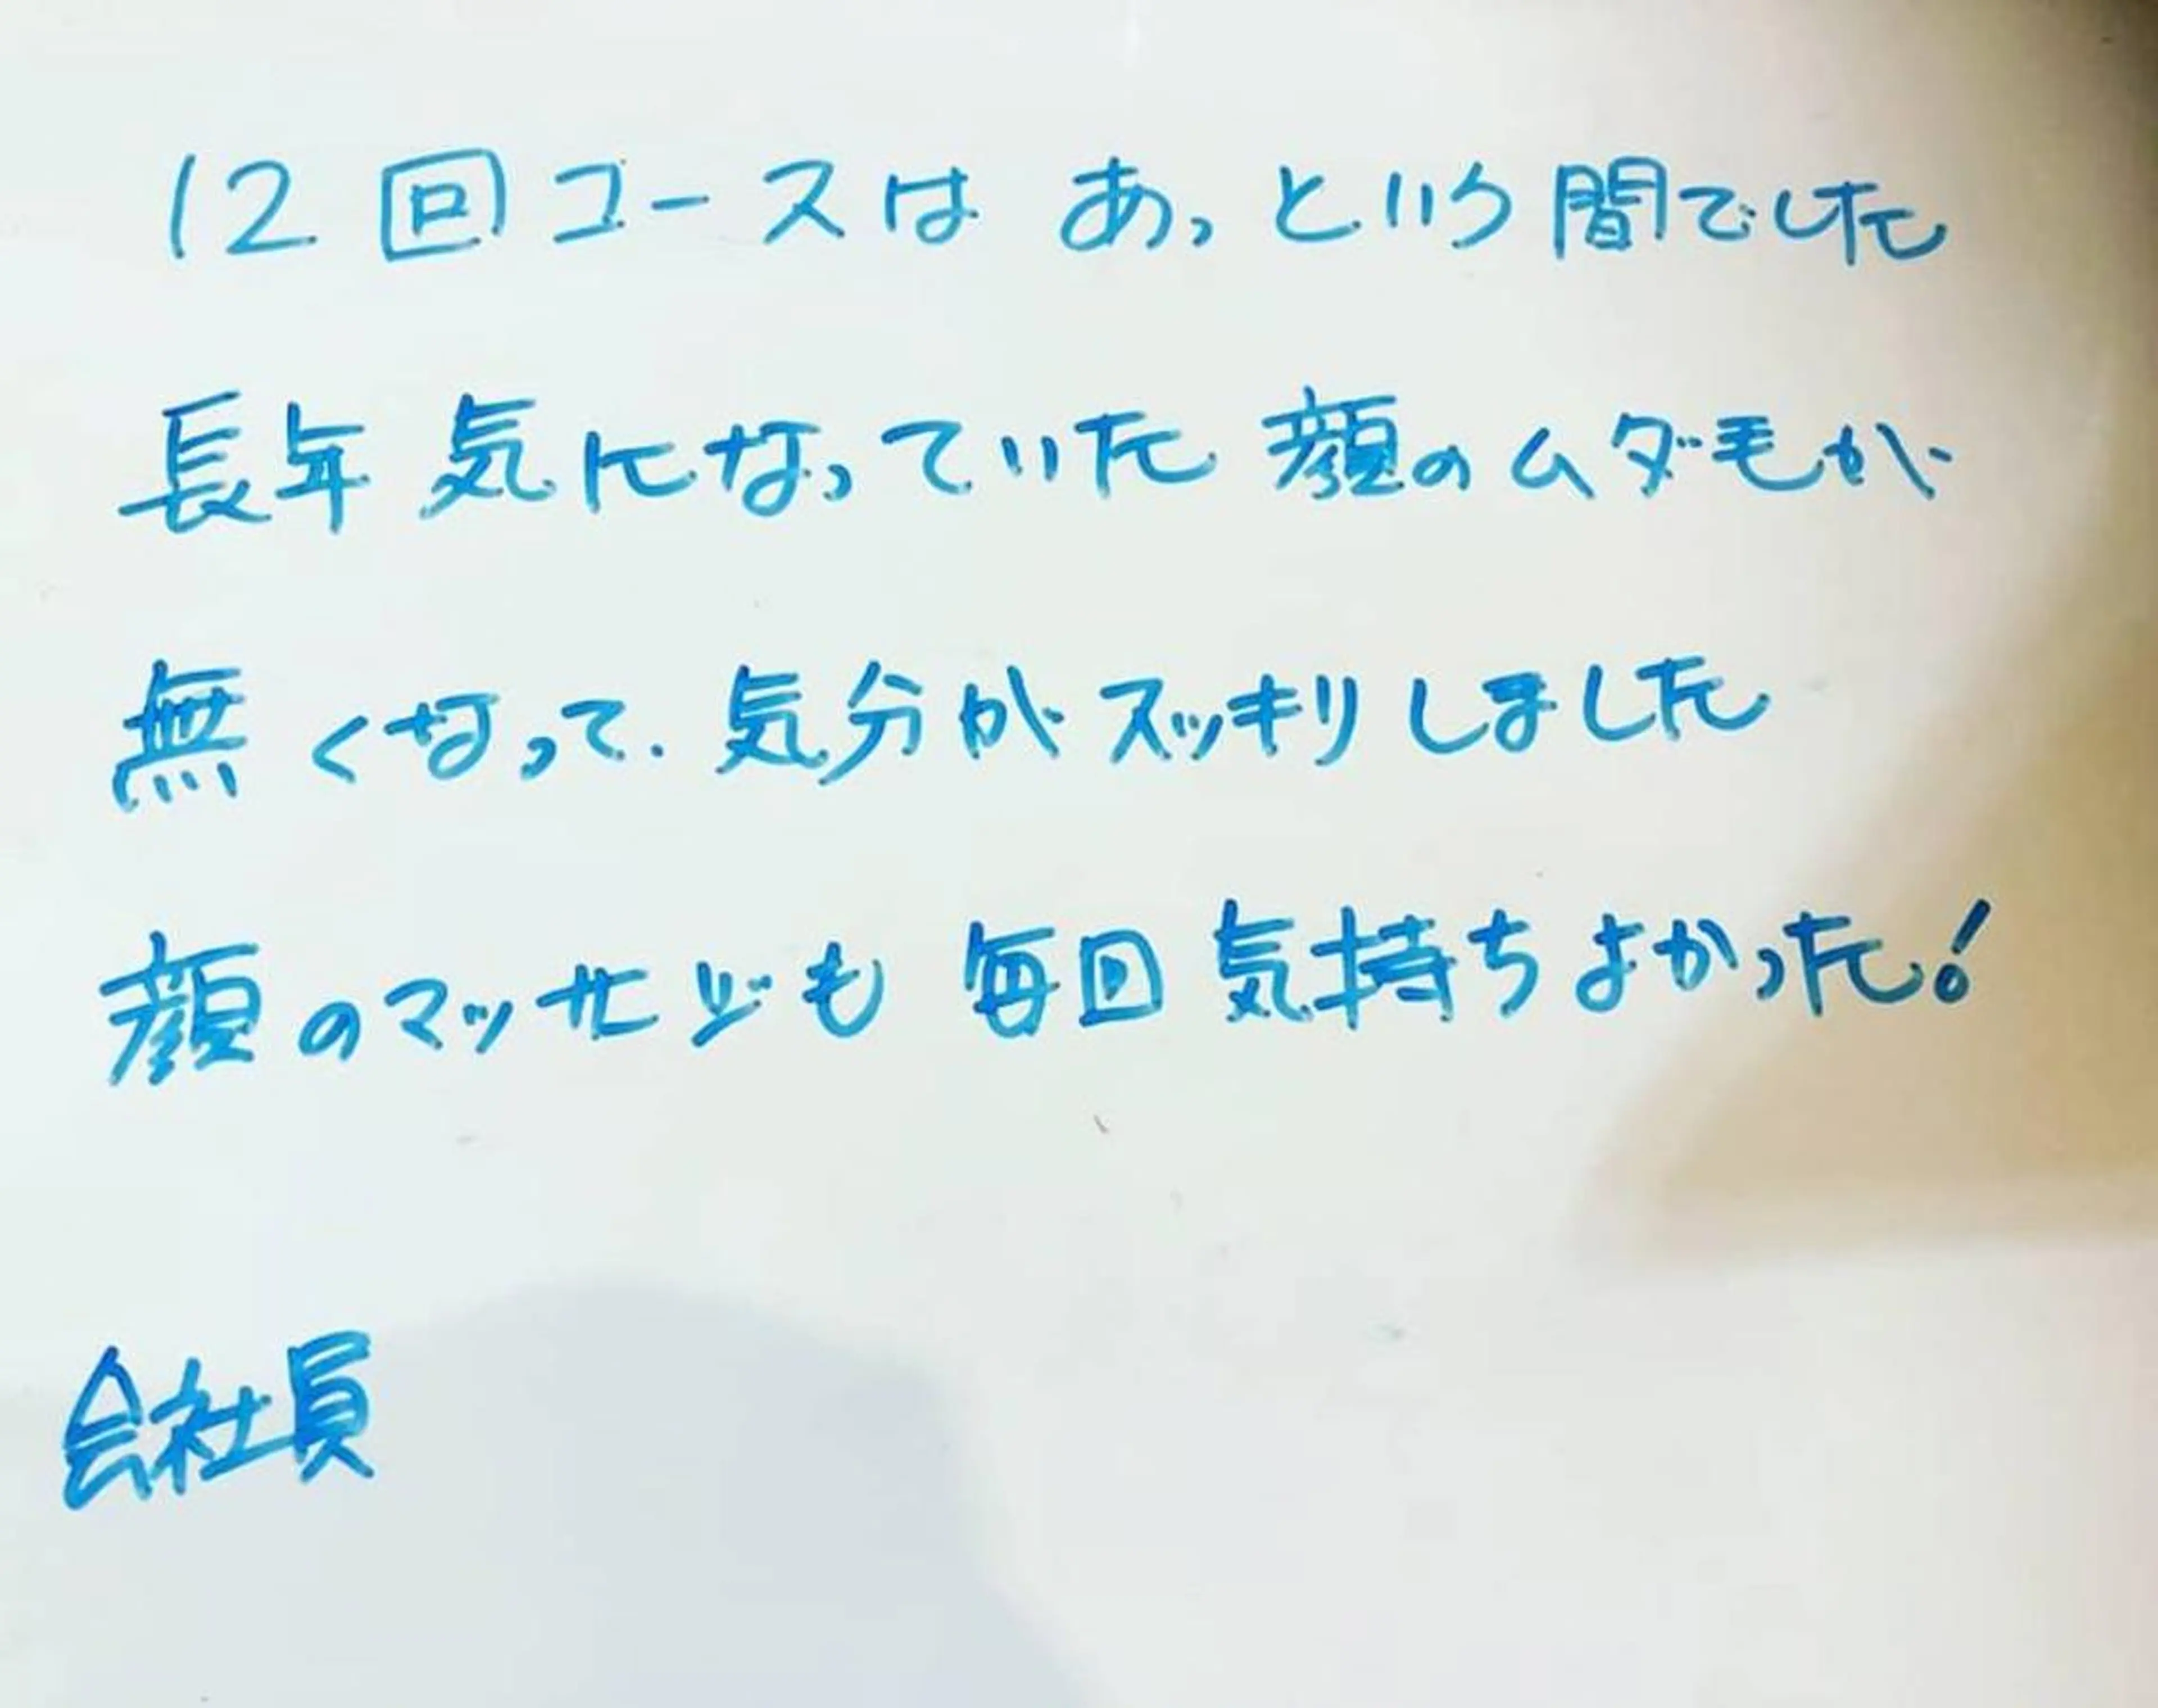 12回コースは あっという間でした
長年 気になっていた 顔のムダ毛が
無くなって、気分がスッキリしました
顔のマッサージも 毎回 気持ちよかった!
会社員